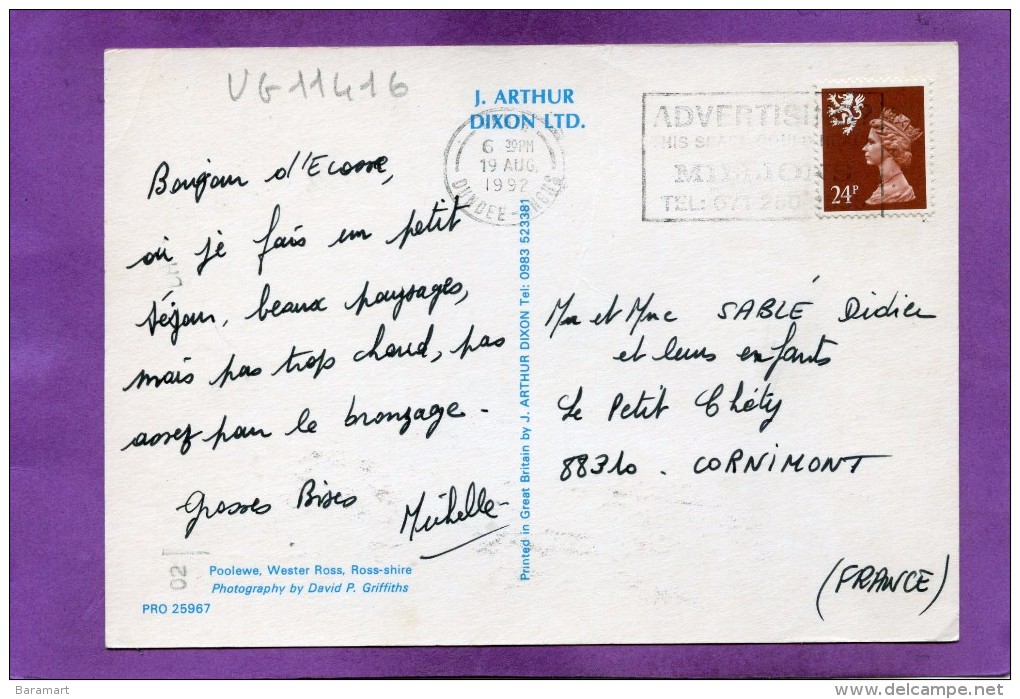 VG11416
J. ARTHUR
DIXON LTD.
6 30PM
19 AUG.
1992
DUNDEE - ANGUS
ADVERTISI
THIS SPACE COULD
MILLIONS
TEL: 071 250
24P
Bonjour d'Ecosse,
où je fais un petit
séjour, beaux paysages,
mais pas trop chaud, pas
assez pour le bronzage -
Grosses Bises
Michelle
Mr et Mme SABLÉ Didier
et leurs enfants
Le Petit Chéty
88310 - CORNIMONT
(FRANCE)
Printed in Great Britain by J. ARTHUR DIXON Tel: 0983 523381
02
Poolewe, Wester Ross, Ross-shire
Photography by David P. Griffiths
PRO 25967
Baramart
delcampe.net